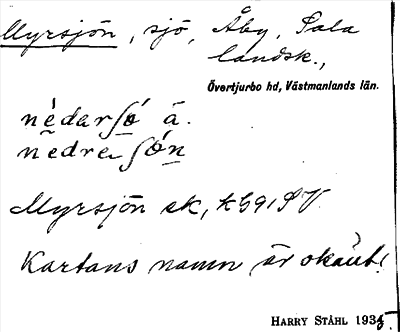 Myrsjön, sjö, Åby, Sala
landsk.,
Övertjurbo hd, Västmanlands län.
nèdarʃó̱ ä.
nedre ʃón
Myrsjön ek, k G91 SV
Kartans namn är okänt!
HARRY STÅHL 1935